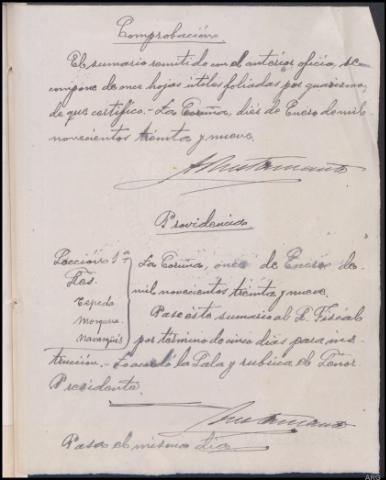 Comprobación
El sumario remitido con el anterior oficio, se
compone de once hojas útiles foliadas por guarismo,
de que certifico.- La Coruña, diez de Enero de mil
novecientos treinta y nueve.
Providencia
Sección 1ª
Sres.
Cepeda
Morquera
Navarguis
La Coruña, once de Enero de
mil novecientos treinta y nueve.
Pase este sumario al S. Fiscal
por termino de cinco dias para ins-
trucción.- Lo acordó la Sala y rubrica el Señor
Presidente.
Pasa el mismo dia
ARG